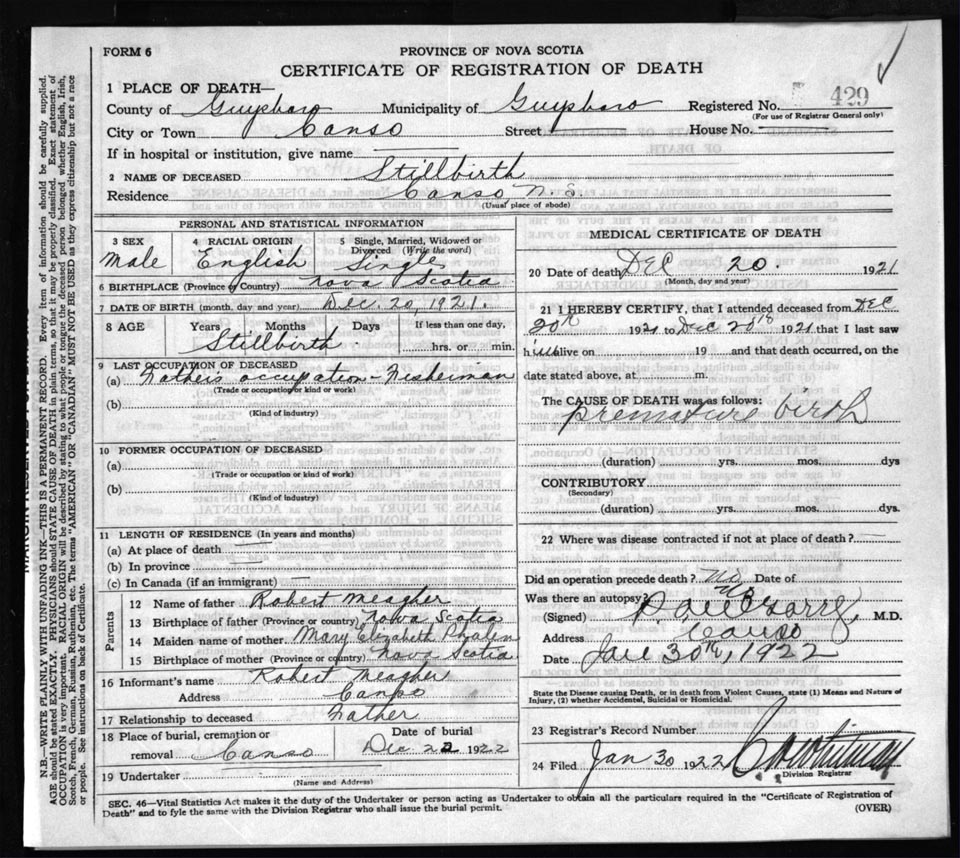 FORM 6
PROVINCE OF NOVA SCOTIA
CERTIFICATE OF REGISTRATION OF DEATH
429
1 PLACE OF DEATH—
County of Guysboro Municipality of Guysboro Registered No.
(For use of Registrar General only)
City or Town Canso Street House No.
If in hospital or institution, give name
2 NAME OF DECEASED Stillbirth
Residence Canso N.S.
(Usual place of abode)
PERSONAL AND STATISTICAL INFORMATION
3 SEX 4 RACIAL ORIGIN 5 Single, Married, Widowed or Divorced (Write the word)
Male English Single
6 BIRTHPLACE (Province or Country) Nova Scotia
7 DATE OF BIRTH (month, day and year) Dec. 20, 1921.
8 AGE Years Months Days If less than one day,
Stillbirth hrs. or min.
9 LAST OCCUPATION OF DECEASED
(a) Father's occupation - Fisherman
(Trade or occupation or kind or work)
(b)
(Kind of industry)
10 FORMER OCCUPATION OF DECEASED
(a)
(Trade or occupation or kind of work)
(b)
(Kind of industry)
11 LENGTH OF RESIDENCE (In years and months)
(a) At place of death
(b) In province
(c) In Canada (if an immigrant)
Parents
12 Name of father Robert Meagher
13 Birthplace of father (Province or country) Nova Scotia
14 Maiden name of mother Mary Elizabeth
15 Birthplace of mother (Province or country) Nova Scotia
16 Informant's name Robert Meagher
Address Canso
17 Relationship to deceased Father
18 Place of burial, cremation or removal Canso
Date of burial Dec 22 1922
19 Undertaker
(Name and Address)
MEDICAL CERTIFICATE OF DEATH
20 Date of death DEC 20. 1921
(Month, day and year)
21 I HEREBY CERTIFY, that I attended deceased from DEC
20th 1921 to Dec 20th 1921 that I last saw
him alive on 19 and that death occurred, on the
date stated above, at m.
The CAUSE OF DEATH was as follows:
premature birth
(duration) yrs. mos. dys
CONTRIBUTORY
(Secondary)
(duration) yrs. mos. dys.
22 Where was disease contracted if not at place of death?
Did an operation precede death? No Date of
Was there an autopsy? No
(Signed) M.D.
Address Canso
Date Jan 30th, 1922
State the Disease causing Death, or in death from Violent Causes, state (1) Means and Nature of
Injury, (2) whether Accidental, Suicidal or Homicidal.
23 Registrar's Record Number
24 Filed Jan 30 1922
Division Registrar
SEC. 46—Vital Statistics Act makes it the duty of the Undertaker or person acting as Undertaker to obtain all the particulars required in the "Certificate of Registration of
Death" and to fyle the same with the Division Registrar who shall issue the burial permit.
(OVER)
N.B.—WRITE PLAINLY WITH UNFADING INK—THIS IS A PERMANENT RECORD. Every item of information should be carefully supplied.
AGE should be stated EXACTLY. PHYSICIANS should STATE CAUSE OF DEATH in plain terms, so that it may be properly classified. Exact statement of
OCCUPATION is very important. RACIAL ORIGIN will be described by stating to what people or tongue the deceased person belonged, whether English, Irish,
Scotch, French, German, Russian, Ruthenian, etc. The terms "AMERICAN" OR "CANADIAN" MUST NOT BE USED as they express citizenship but not a race
or people. See instructions on back of Certificate.